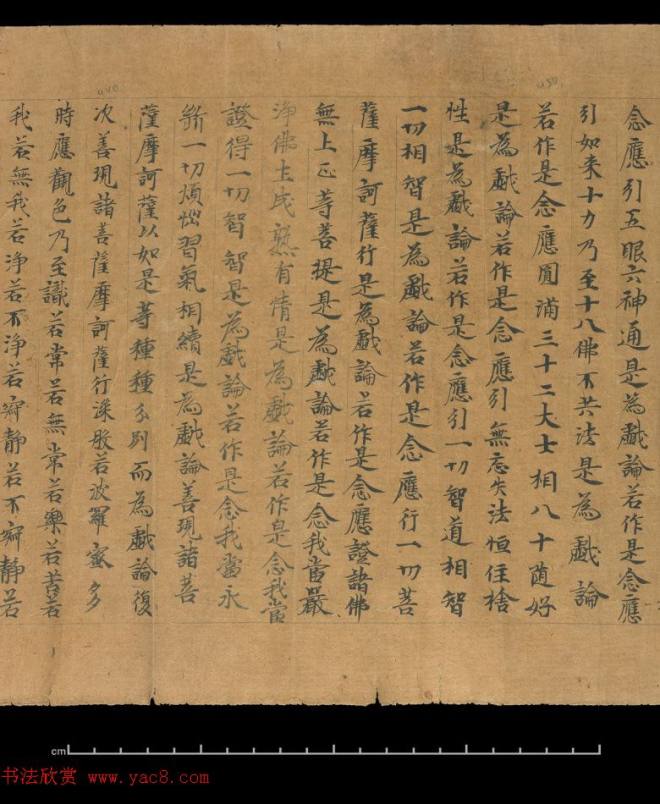 念應引五眼六神通是為戲論若作是念應
引如来十力乃至十八佛不共法是為戲論
若作是念應圓滿三十二大士相八十随好
是為戲論若作是念應引無忘失法恒住捨
性是為戲論若作是念應引一切智道相智
一切相智是為戲論若作是念應行一切菩
薩摩訶薩行是為戲論若作是念應證諸佛
無上正等菩提是為戲論若作是念我當嚴
淨佛土成熟有情是為戲論若作是念我當
證得一切智智是為戲論若作是念我當永
斷一切煩惱習氣相續是為戲論善現諸菩
薩摩訶薩以如是等種種分別而為戲論復
次善現諸菩薩摩訶薩行深般若波羅蜜多
時應觀色乃至識若常若無常若樂若苦若
我若無我若淨若不淨若寂静若不寂静若
cm
书法欣赏 www.yac8.com